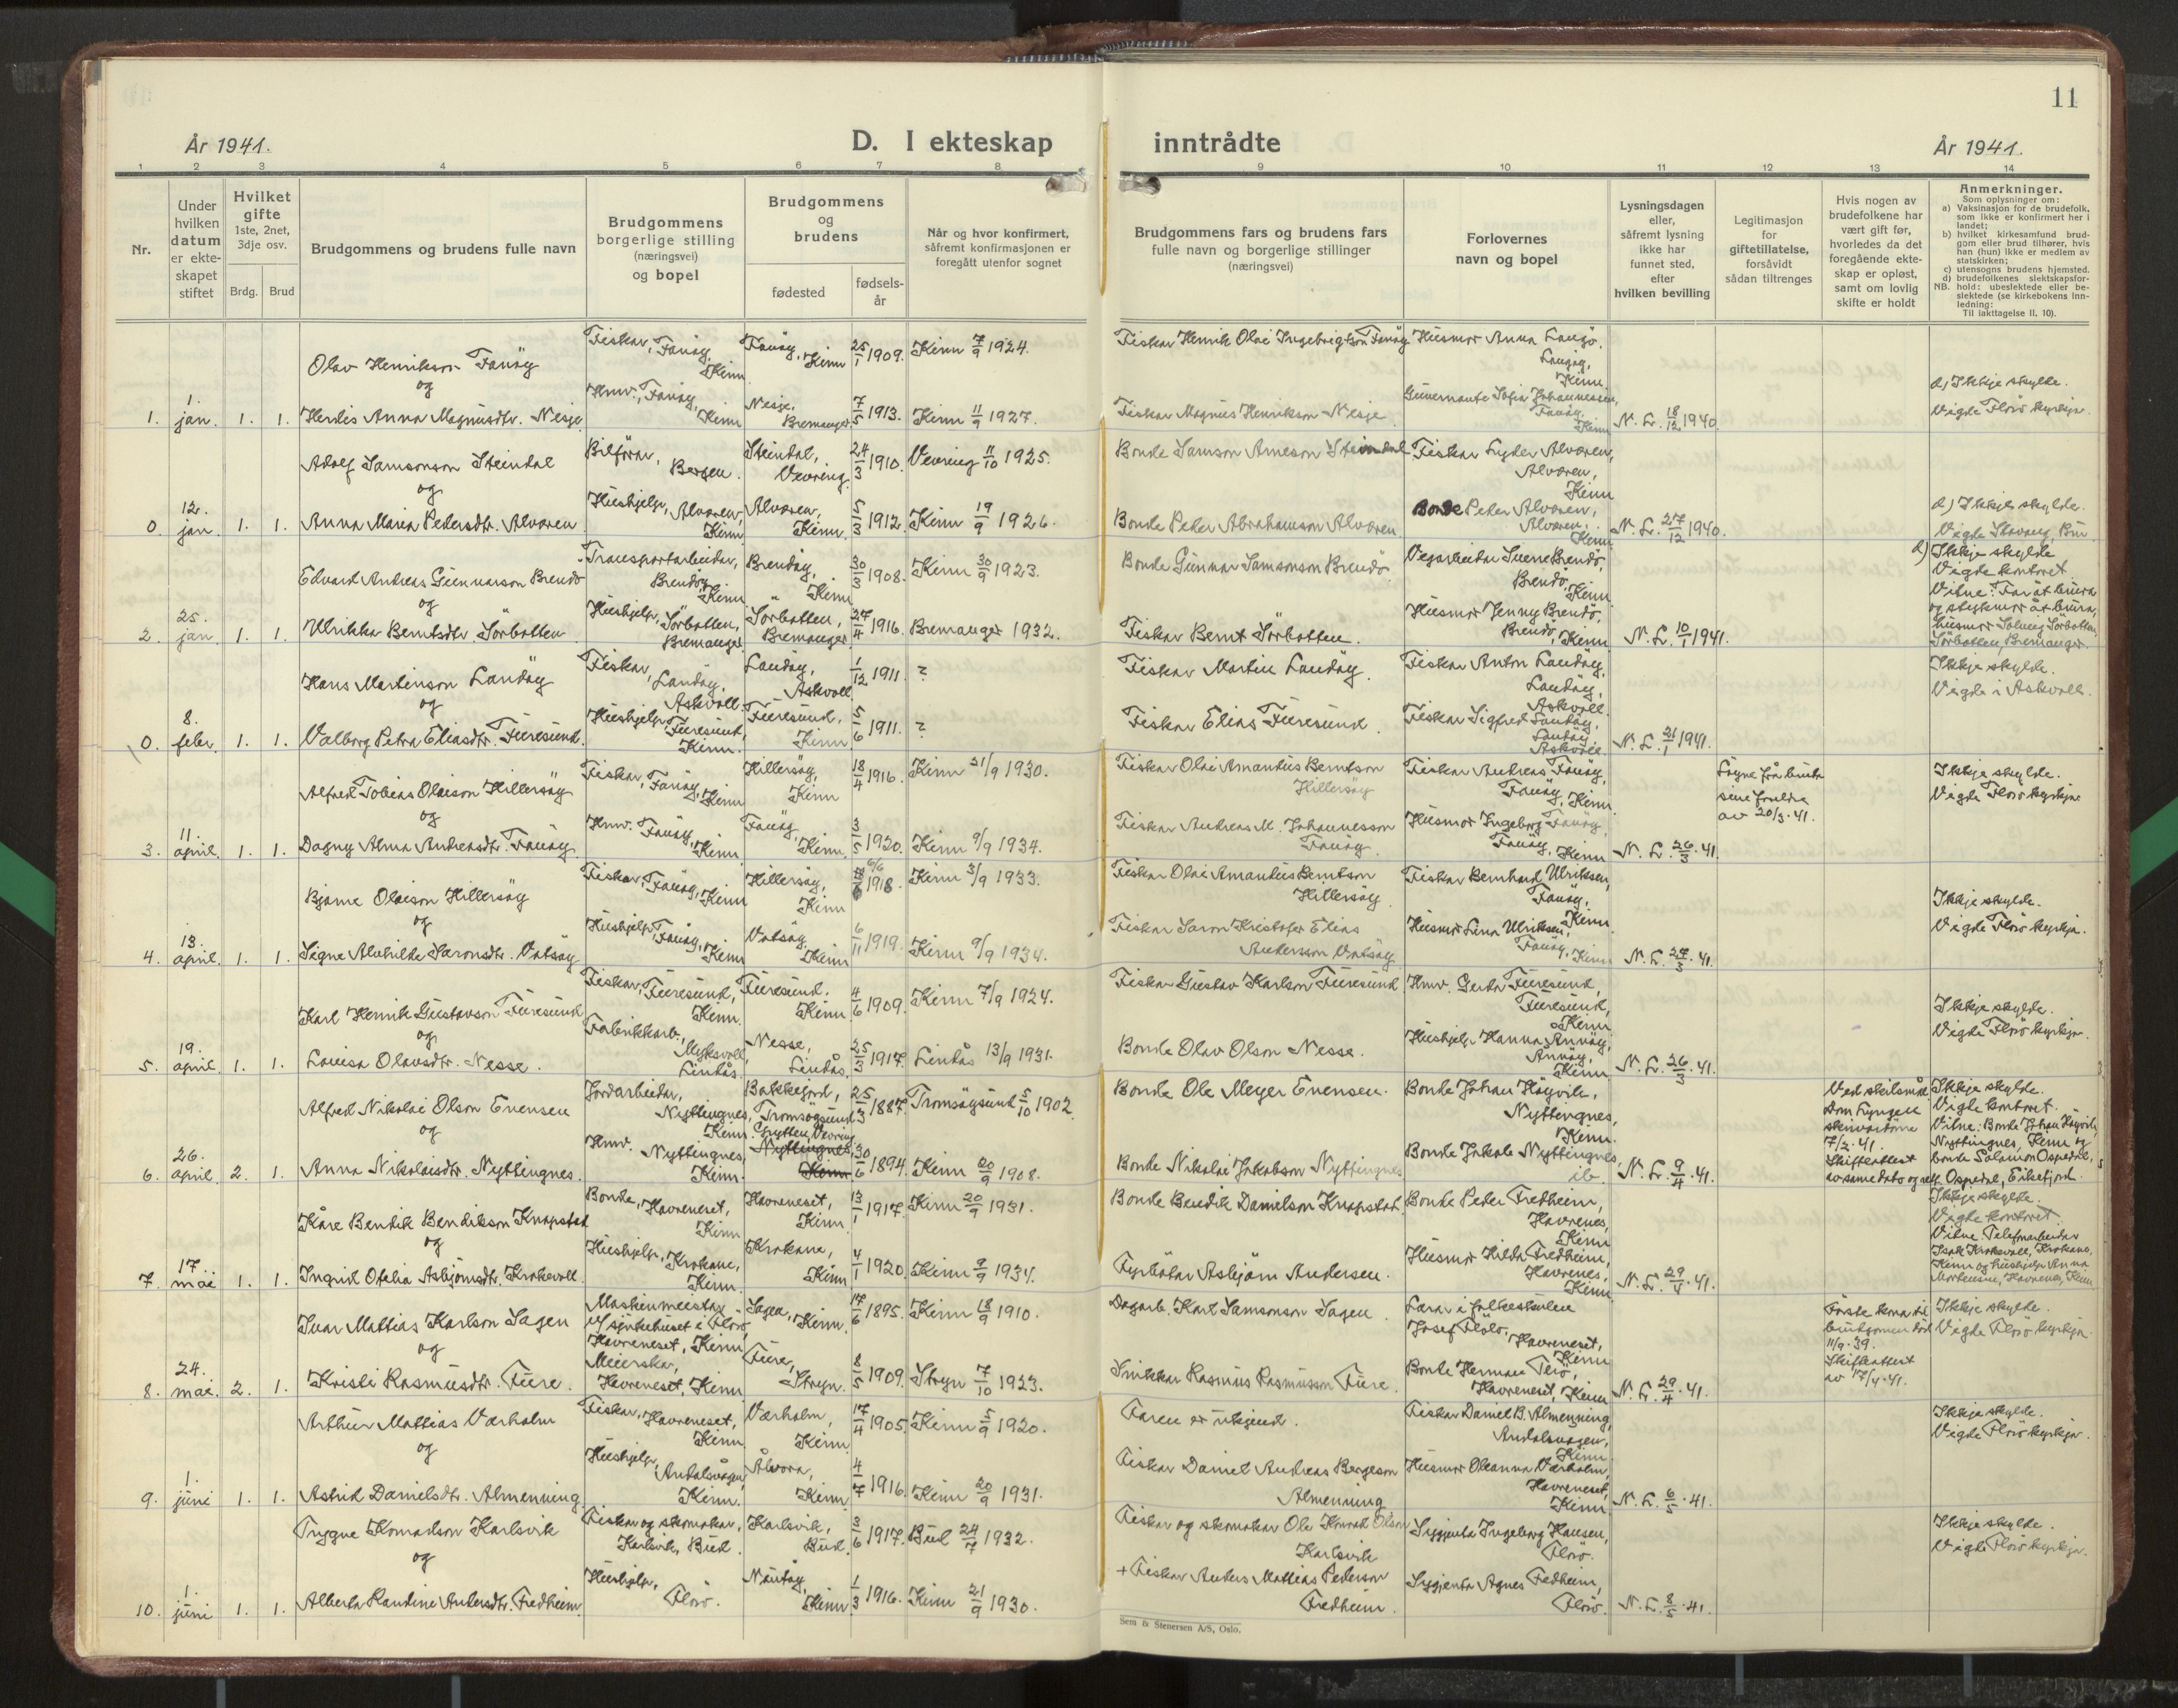 11
År 1941.
D. I ekteskap inntrådte
År 1941.
1 2 3 4 5 6 7 8 9 10 11 12 13 14
Nr.
Under
hvilken
datum
er ekte-
skapet
stiftet
Hvilket
gifte
1ste, 2net,
3dje osv.
Brdg. Brud
Brudgommens og brudens fulle navn
Brudgommens
borgerlige stilling
(næringsvei)
og bopel
Brudgommens
og
brudens
fødested
fødsels-
år
Når og hvor konfirmert,
såfremt konfirmasjonen er
foregått utenfor sognet
Brudgommens fars og brudens fars
fulle navn og borgerlige stillinger
(næringsvei)
Forlovernes
navn og bopel
Lysningsdagen
eller,
såfremt lysning
ikke har
funnet sted,
efter
hvilken bevilling
Legitimasjon
for
giftetillatelse,
forsåvidt
sådan tiltrenges
Hvis nogen av
brudefolkene har
vært gift før,
hvorledes da det
foregående ekte-
skap er opløst,
samt om lovlig
skifte er holdt
Anmerkninger.
Som oplysninger om:
a) Vaksinasjon for de brudefolk,
som ikke er konfirmert her i
landet;
b) hvilket kirkesamfund brud-
gom eller brud tilhører, hvis
han (hun) ikke er medlem av
statskirken;
c) utensogns brudens hjemsted.
d) brudefolkenes slektskapsfor-
NB. hold: ubeslektede eller be-
slektede (se kirkebokens inn-
ledning:
Til iakttagelse II, 10).
1. 1. jan. 1. 1.
Olav Henrikson Fanöy
og
Herdis Anna Magnusdtr. Nesje
Fiskar, Fanöy, Kinn
Hmv., Fanöy, Kinn
Fanöy, Kinn 25/1 1909. Kinn 7/9 1924.
Nesje, Bremanger 7/5 1913. Kinn 11/9 1927.
Fiskar Henrik Olai Ingebrigtson Fanöy
Fiskar Magnus Henrikson Nesje
Husmor Anna
Kinn.
Sofia Johannessen,
Fanöy, Kinn
N. L. 18/12 1940.
d) Ikkje skylde.
Vigde Florö kyrkja.
0. 12. jan. 1. 1.
Adolf Samsonson Steindal
og
Anna Maria Pedersdtr. Alværen
Bilförar, Bergen.
Hushjelp, Alværen, Kinn
Steindal, Vevring. 24/3 1910. Vevring 11/10 1925.
Alværen, Kinn. 5/3 1912. Kinn 19/9 1926.
Bonde Samson Arneson Steindal
Bonde Peder Abrahamson Alværen
Fiskar Lyder Alværen,
Alværen, Kinn
Bonde Peder Alværen,
Alværen, Kinn.
N. L. 27/12 1940.
d) Ikkje skylde.
Vigde Stavang, Bru
2. 25. jan. 1. 1.
Edvard Andreas Gunnarson Brendö
og
Ulrikka Berntsdtr. Sörbotten
Transportarbeidar,
Brendöy, Kinn
Hushjelp, Sörbotten,
Bremanger
Brendöy, Kinn 30/3 1908. Kinn 30/9 1923.
Sörbotten, Bremanger 27/4 1916. Bremanger 1932.
Bonde Gunnar Samsonson Brendö
Fiskar Bernt Sörbotten.
Vegarbeidar Sverre Brendö,
Brendö, Kinn
Husmor Jenny Brendö,
Brendö, Kinn
N. L. 10/1 1941.
d) Ikkje skylde
Vigde kontoret
Vitne: Far åt brura
og stegmor åt brura,
husmor Solveig Sörbotten,
Sörbotten, Bremanger.
0. 8. febr. 1. 1.
Hans Martinson Landöy
og
Valborg Petra Eliasdtr. Furesund.
Fiskar, Landöy, Askvoll.
Hushjelp, Furesund, Kinn.
Landöy, Askvoll 1/12 1911. ?
Furesund, Kinn 5/6 1911. ?
Fiskar Martin Landöy.
Fiskar Elias Furesund.
Fiskar Anton Landöy,
Landöy, Askvoll.
Fiskar Sigfred Landöy,
Landöy, Askvoll.
N. L. 21/1 1941.
Ikkje skylde.
Vigde i Askvoll.
3. 11. april. 1. 1.
Alfred Tobias Olaison Hillersöy
og
Dagny Alma Andreasdtr. Fanöy
Fiskar, Fanöy, Kinn
Hmv. Fanöy, Kinn
Hillersöy, Kinn 18/4 1916. Kinn 21/9 1930.
Fanöy, Kinn. 3/5 1920. Kinn 9/9 1934.
Fiskar Olai Amandus Berntson
Hillersöy
Fiskar Andreas M. Johannesson
Fanöy.
Fiskar Andreas Fanöy,
Fanöy, Kinn
Husmor Ingeborg Fanöy,
Fanöy, Kinn
N. L. 26/3.41.
frå
sine foreldre
av 20/3.41.
Ikkje skylde.
Vigde Florö kyrkja.
4. 13. april. 1. 1.
Bjarne Olaison Hillersöy
og
Signe Alvhilde Saronsdtr. Vatsöy
Fiskar, Fanöy, Kinn
Hushjelp, Fanöy, Kinn
Hillersöy, Kinn 6/6 1918. Kinn 3/9 1933.
Vatsöy, Kinn 6/11 1919. Kinn 9/9 1934.
Fiskar Olai Amandus Berntson
Hillersöy
Fiskar Saron Kristofer Elias
Anderson Vatsöy
Fiskar Bernhard Ulriksen,
Fanöy, Kinn.
Husmor Lina Ulriksen,
Fanöy, Kinn
N. L. 27/3.41.
Ikkje skylde.
Vigde Florö kyrkja.
5. 19. april. 1. 1.
Karl Henrik Gustavson Furesund
og
Lovisa Olavsdtr. Nesse.
Fiskar, Furesund, Kinn.
Fabrikkarb., Myksvoll, Lindås.
Furesund. Kinn. 4/6 1909. Kinn 7/9 1924.
Nesse, Lindås. 25/3 1917. Lindås 13/9 1931.
Fiskar Gustav Karlson Furesund
Bonde Olav Olson Nesse.
Hmv. Gerda Furesund,
Furesund, Kinn.
Hushjelp Hanna Annöy,
Annöy, Kinn
N. L. 26/3.41.
Ikkje skylde.
Vigde Florö kyrkja.
6. 26. april 2. 1.
Alfred Nikolai Olson Evensen
og
Anna Nikolaisdtr. Nyttingnes.
Jordarbeidar, Nyttingnes, Kinn.
Hmv. Nyttingnes, Kinn.
Bakkejord, Tromsöysund 25/3 1887. Tromsöysund 5/10 1902.
Grytten, Vevring Nyttingnes, Kinn 30/6 1894. Kinn 20/9 1908.
Bonde Ole Meyer Evensen.
Bonde Nikolai Jakobson Nyttingnes
Bonde Johan Högvik,
Nyttingnes, Kinn.
Bonde Jakob Nyttingnes,
ib.
N. L. 9/4.41.
Ved skilsmål
17/2.41.
Skifteattest
Ikkje skylde.
Vigde kontoret.
Vitne: Bonde Johan Högvik,
Nyttingnes, Kinn og
bonde Salamon Ospedal,
Ospedal, Eikefjord.
7. 17. mai 1. 1.
Kåre Bendik Bendikson Knapstad
og
Ingrid Otelia Asbjörnsdtr. Krokevoll.
Bonde, Havreneset, Kinn
Hushjelp, Krokane, Kinn.
Havreneset, Kinn. 13/1 1917. Kinn 20/9 1931.
Krokane, Kinn 4/1 1920. Kinn 9/9 1934.
Bonde Bendik Danielson Knapstad.
Fyrbötar Asbjörn Andersen.
Bonde Peder Fredheim,
Havrenes, Kinn
Husmor Hilda Fredheim,
Havrenes, Kinn
N. L. 29/4.41.
Ikkje skylde.
Vigde kontoret.
Vitne Telefonarbeidar
Isak Krokevoll, Krokane,
Kinn og hushjelp Anna
Mortensen, Havrenes, Kinn
8. 24. mai. 2. 1.
Ivar Mattias Karlson Sagen
og
Kristi Rasmusdtr. Fure.
Maskinmeister
v/ sjukehuset i Florö,
Havreneset, Kinn
Meierskar,
Havreneset, Kinn
Sagen, Kinn. 17/6 1895. Kinn 18/9 1910.
Fure, Stryn. 8/5 1909. Stryn 7/10 1923.
Dagarb. Karl Samsonson Sagen
Snikkar Rasmus Rasmusson Fure.
Lærar i folkeskulen
Josef Flölo, Havreneset, Kinn
Bonde Herman
Havreneset, Kinn
N. L. 29/4.41.
Förste kona til
brudgomen död
11/9.39.
Skifteattest
av 17/4.41.
Ikkje skylde.
Vigde Florö kyrkja.
9. 1. juni 1. 1.
Arthur Mattias Værholm
og
Astrid Danielsdtr. Almenning
Fiskar, Havreneset, Kinn
Hushjelp, Andalsvågen, Kinn.
Værholm, Kinn. 17/4 1905. Kinn 5/9 1920.
Ålvora, Kinn 4/7 1916. Kinn 20/9 1931.
Faren er ukjend.
Fiskar Daniel Andreas Bergeson
Almenning
Fiskar Daniel B. Almenning,
Andalsvågen, Kinn
Husmor Oleanna Værholm,
Havreneset, Kinn
N. L. 6/5.41.
Ikkje skylde.
Vigde Florö kyrkja.
10. 1. juni 1. 1.
Trygve Konradson Karlsvik
og
Alberta Randine Andersdtr. Fredheim.
Fiskar og skomakar,
Karlsvik, Bud.
Hushjelp, Florö.
Karlsvik, Bud. 3/6 1917. Bud 24/7 1932.
Nautöy, Kinn 1/3 1916. Kinn 21/9 1930.
Fiskar og skomakar Ole Konrad Olson
Karlsvik
+ Fiskar Anders Mattias Pederson
Fredheim.
Syjenta Ingeborg Hansen,
Florö.
Syjenta Agnes Fredheim,
Florö.
N. L. 8/5.41.
Ikkje skylde.
Vigde Florö kyrkja.
Sem & Stenersen A/S, Oslo.